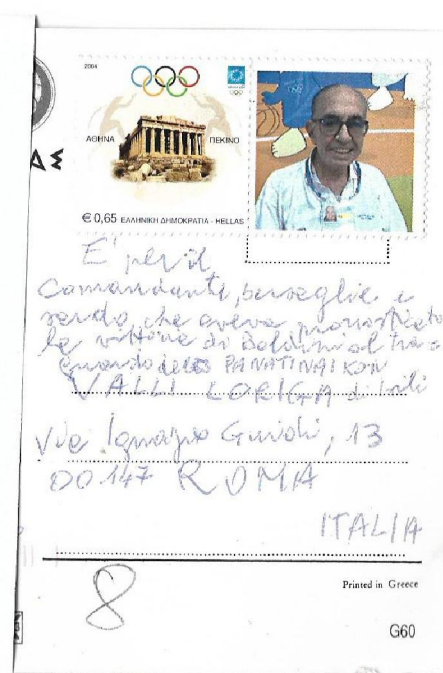 2004
ΑΘΗΝΑ ΠΕΚΙΝΟ
€ 0,65 ΕΛΛΗΝΙΚΗ ΔΗΜΟΚΡΑΤΙΑ - HELLAS
ΑΣ
E' per il
Comandante, e
che aveva pronosticato
la vittoria di Baldini al tra=
guardo dello PANATINAIKON
VALLI LORIGA di
Via Ignazio Guidi, 13
00147 ROMA
ITALIA
8
Printed in Greece
G60